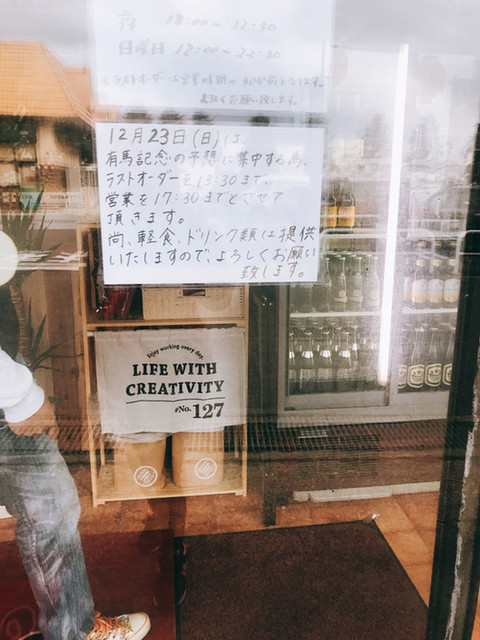 夜 18:00〜22:30
日曜日 12:00〜22:30
ラストオーダーは営業時間の30分前となります。
よろしくお願い致します。
12月23日(日)は、
有馬記念の予想に集中する為、
ラストオーダーを13:30まで、
営業を17:30までとさせて
頂きます。
尚、軽食、ドリンク類は提供
いたしますので、よろしくお願い
致します。
Enjoy working every day.
LIFE WITH
CREATIVITY
#No.127